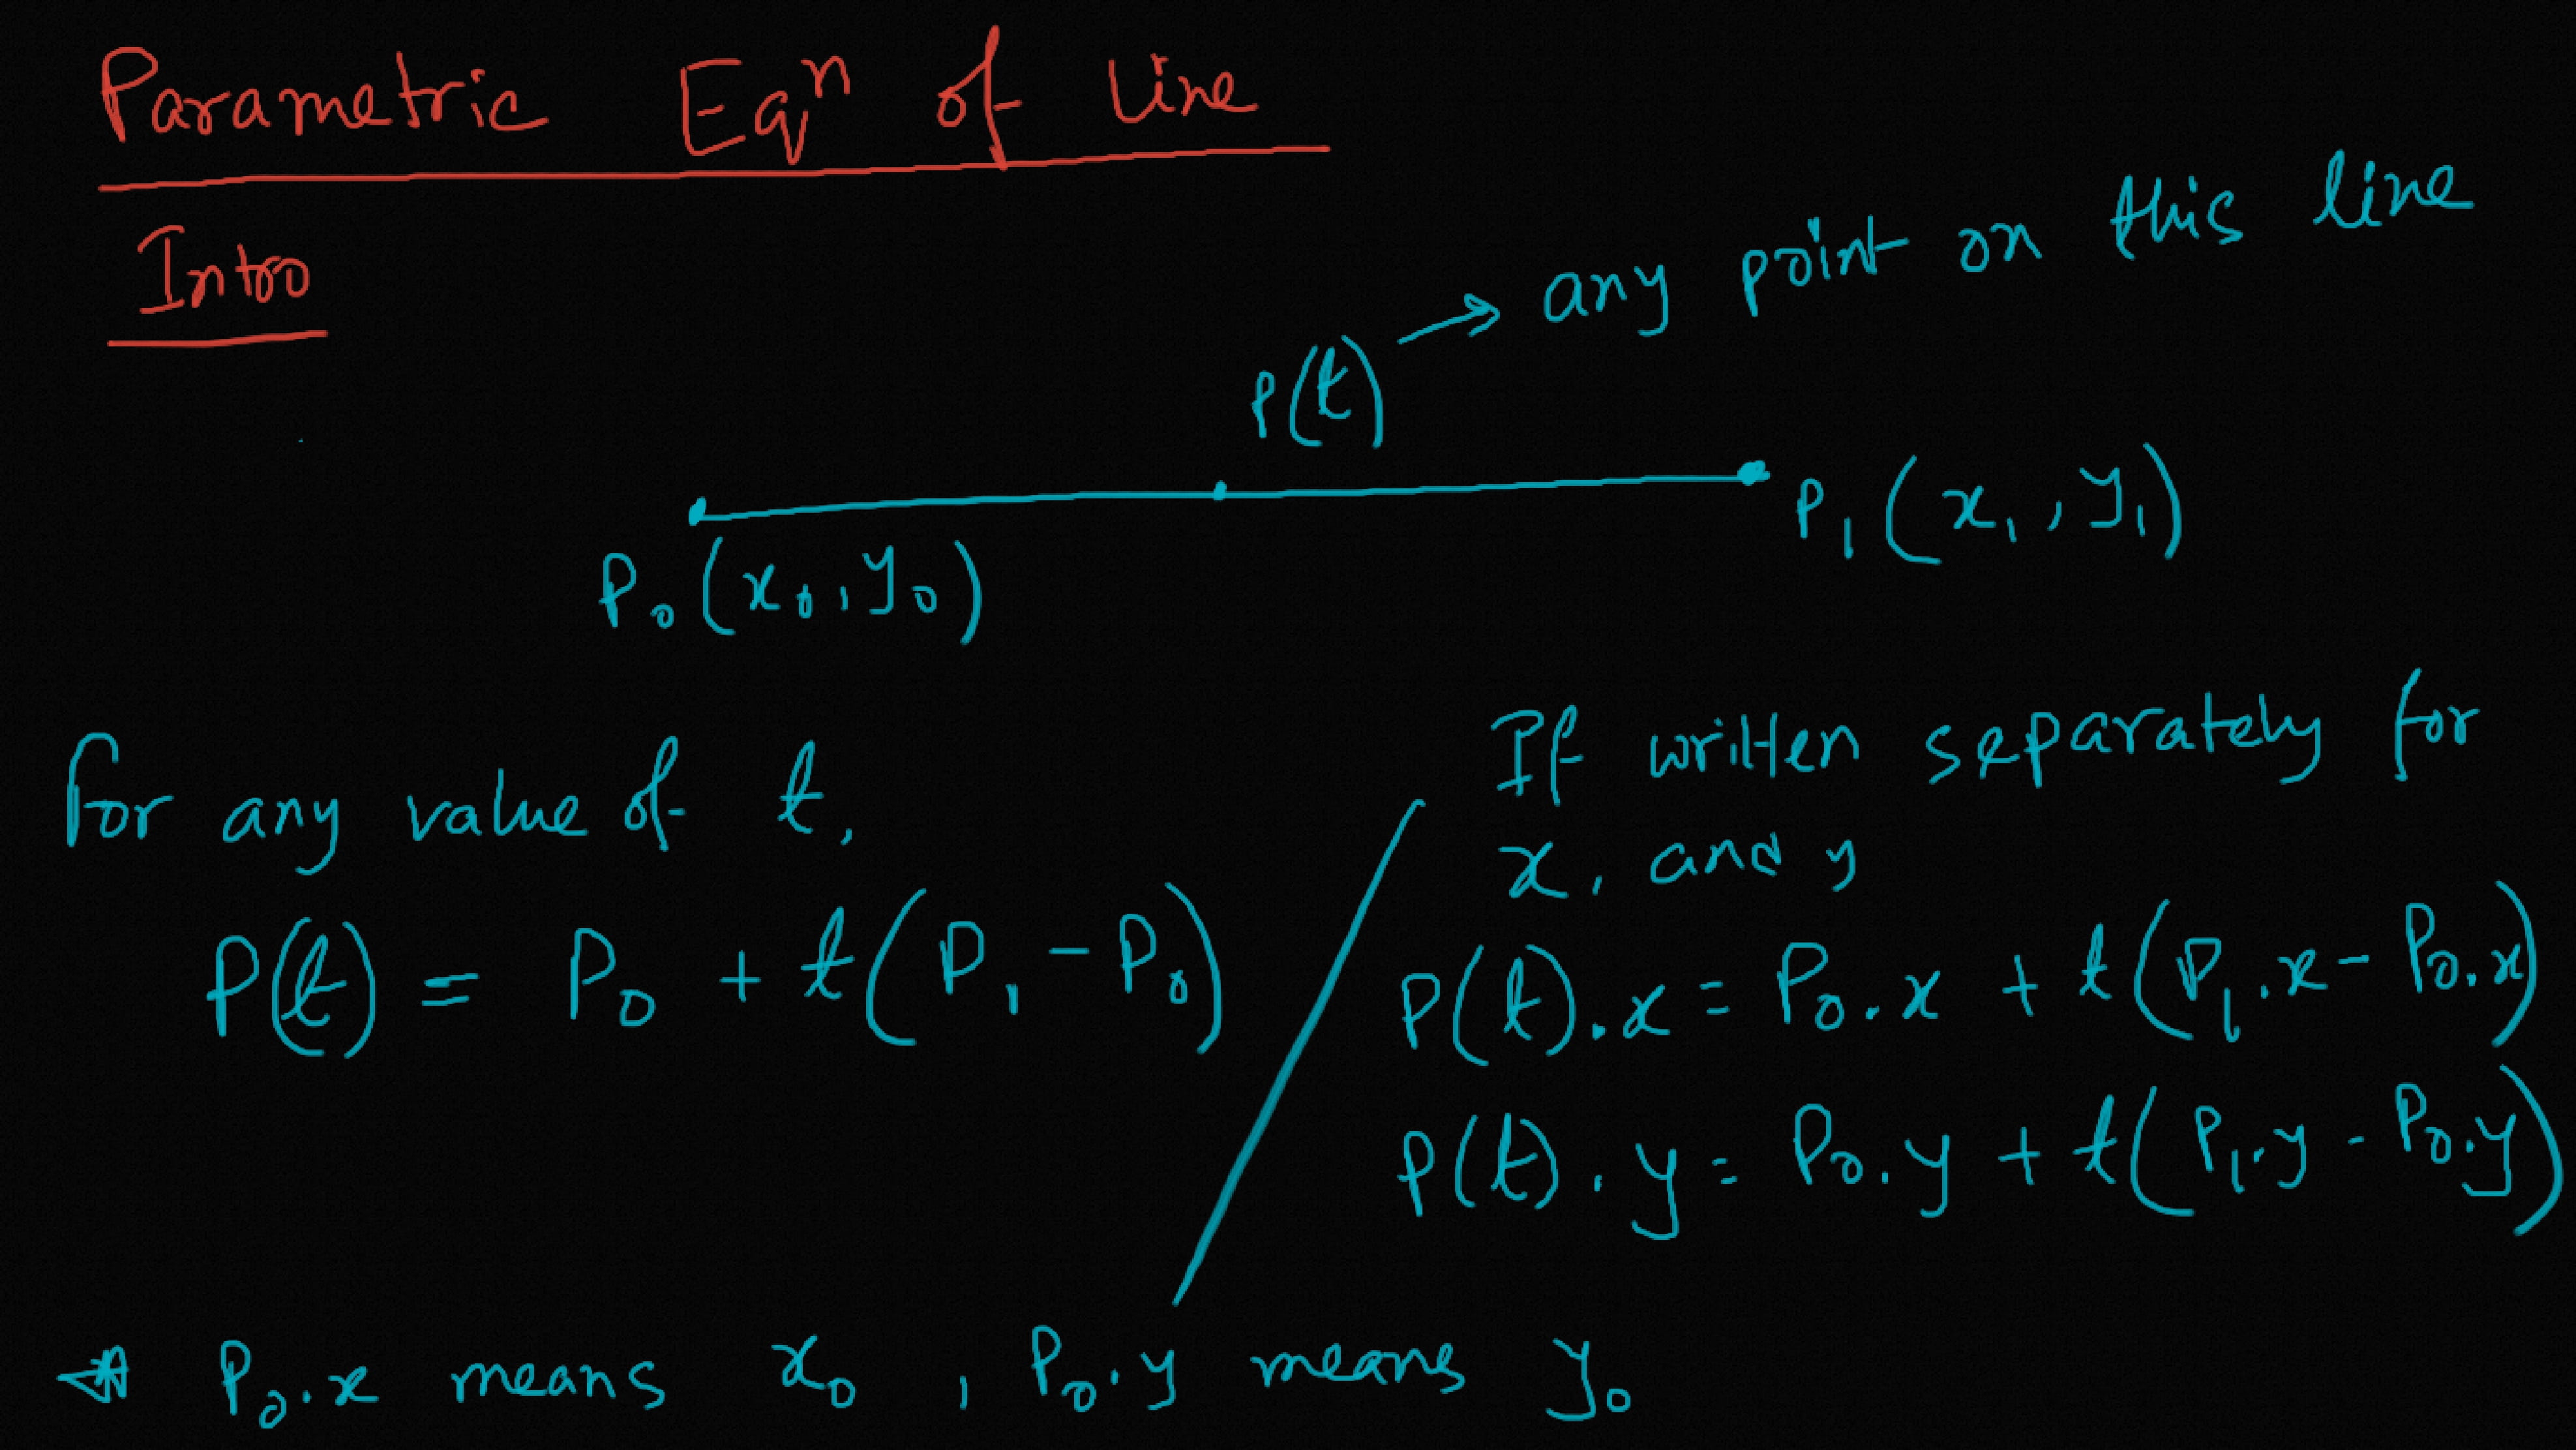 Parametric Eqⁿ of Line
Intro
P(t) → any point on this line
P₀(x₀, y₀)
P₁(x₁, y₁)
For any value of t,
P(t) = P₀ + t(P₁ - P₀)
If written separately for
x, and y
P(t).x = P₀.x + t(P₁.x - P₀.x)
P(t).y = P₀.y + t(P₁.y - P₀.y)
P₀.x means x₀, P₀.y means y₀